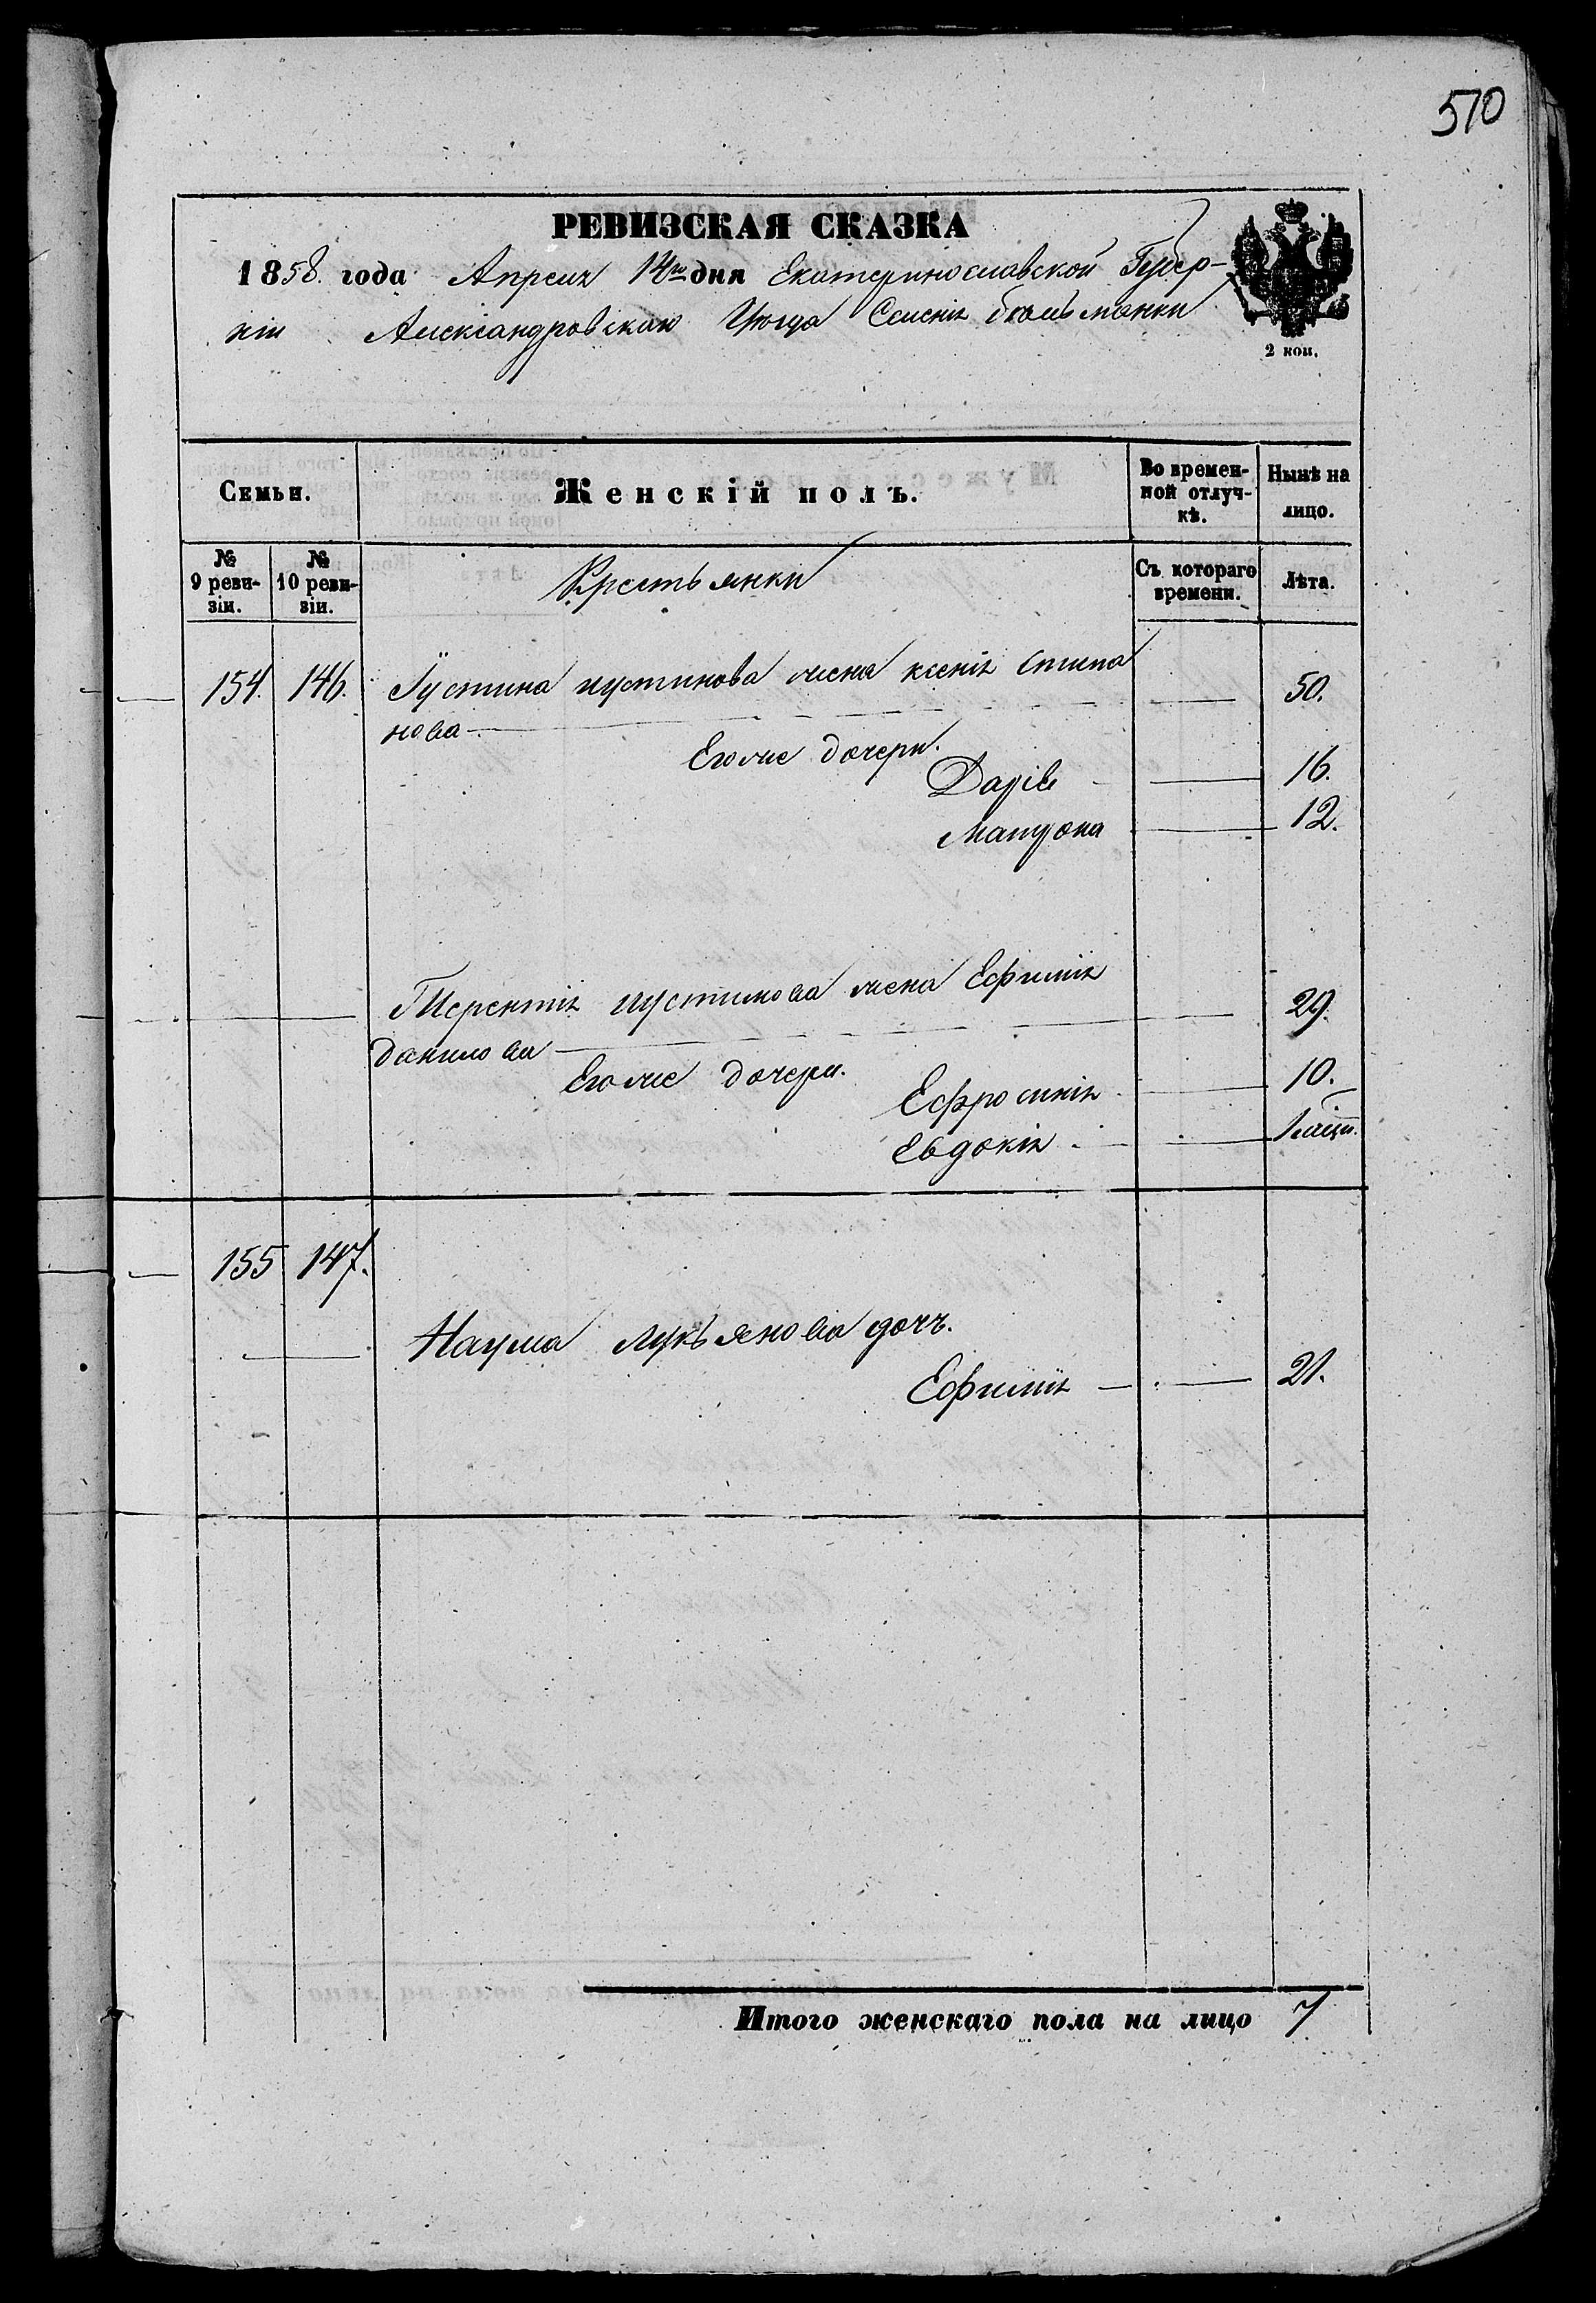 510
РЕВИЗСКАЯ СКАЗКА
1858. года Апреля 14го дня Екатеринославской Губер-
нiи Александровскаго Уезда Селенiя
2 коп.
Семьи.
Женскiй полъ.
Во времен-
ной отлуч-
кѣ.
Нынѣ на
лицо.
№
9 реви-
зiи.
№
10 реви-
зiи.
Крестьянки
Съ котораго
времени.
Лѣта.
154. 146. Густина иустинова жена ксенiя Степа 50.
нова
Егоже дочери.
Дарiя 16.
Матрона 12.
Терентiя иустинова жена Ефимiя 29.
данилова
Егоже дочери.
Ефросинiя 10.
Евдокiя 1
155 147.
Наума лукьянова дочь.
Ефимiя 21.
Итого женскаго пола на лицо 7